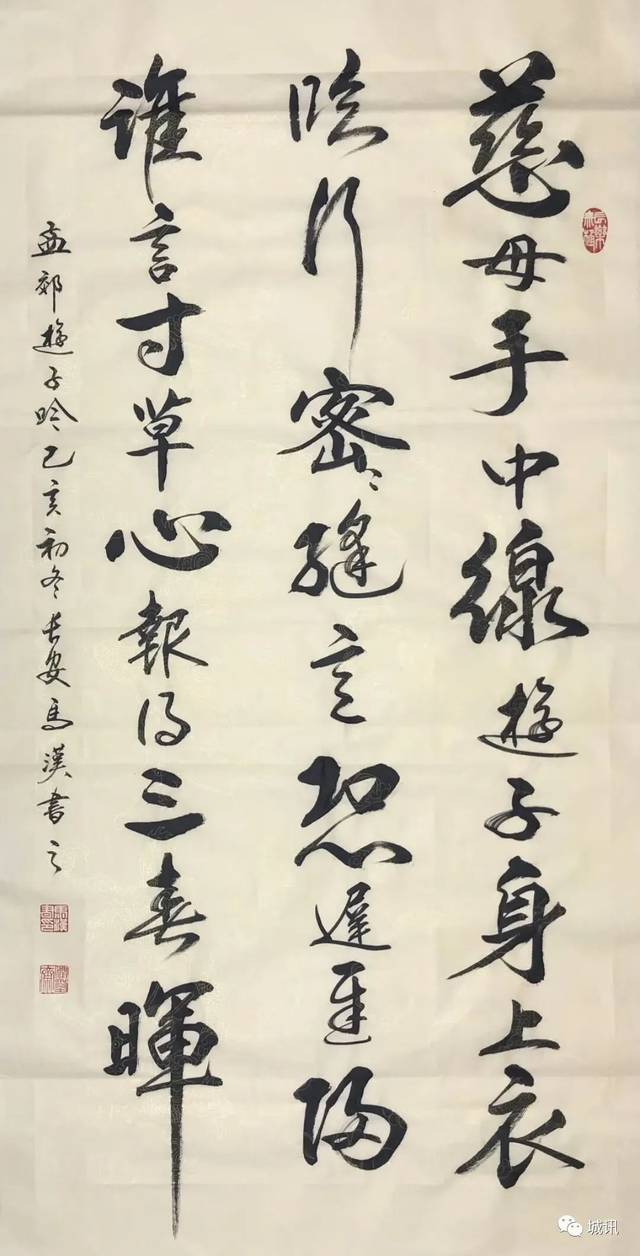 慈母手中線遊子身上衣
臨行密〻縫意恐遲遲歸
誰言寸草心報得三春暉
孟郊遊子吟己亥初冬長安馬漢書之
長樂未央
城讯